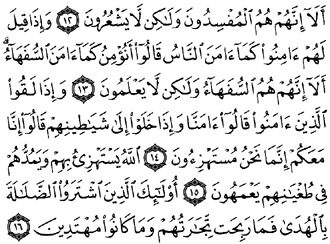 أَلَآ إِنَّهُمْ هُمُ ٱلْمُفْسِدُونَ وَلَٰكِن لَّا يَشْعُرُونَ ١٢ وَإِذَا قِيلَ
لَهُمْ ءَامِنُوا۟ كَمَآ ءَامَنَ ٱلنَّاسُ قَالُوٓا۟ أَنُؤْمِنُ كَمَآ ءَامَنَ ٱلسُّفَهَآءُ ۗ
أَلَآ إِنَّهُمْ هُمُ ٱلسُّفَهَآءُ وَلَٰكِن لَّا يَعْلَمُونَ ١٣ وَإِذَا لَقُوا۟
ٱلَّذِينَ ءَامَنُوا۟ قَالُوٓا۟ ءَامَنَّا وَإِذَا خَلَوْا۟ إِلَىٰ شَيَٰطِينِهِمْ قَالُوٓا۟ إِنَّا
مَعَكُمْ إِنَّمَا نَحْنُ مُسْتَهْزِءُونَ ١٤ ٱللَّهُ يَسْتَهْزِئُ بِهِمْ وَيَمُدُّهُمْ
فِى طُغْيَٰنِهِمْ يَعْمَهُونَ ١٥ أُو۟لَٰٓئِكَ ٱلَّذِينَ ٱشْتَرَوُا۟ ٱلضَّلَٰلَةَ
بِٱلْهُدَىٰ فَمَا رَبِحَت تِّجَٰرَتُهُمْ وَمَا كَانُوا۟ مُهْتَدِينَ ١٦